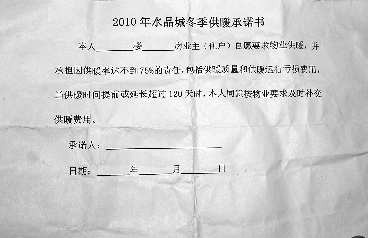 2010年水晶城冬季供暖承诺书
本人______楼______的业主（住户）自愿要求物业供暖，并
承担因供暖率达不到75%的责任，包括供暖质量和供暖运行亏损费用。
当供暖时间提前或延长超过120天时，本人同意按物业要求及时补交
供暖费用。
承诺人：
日期：______年______月______日